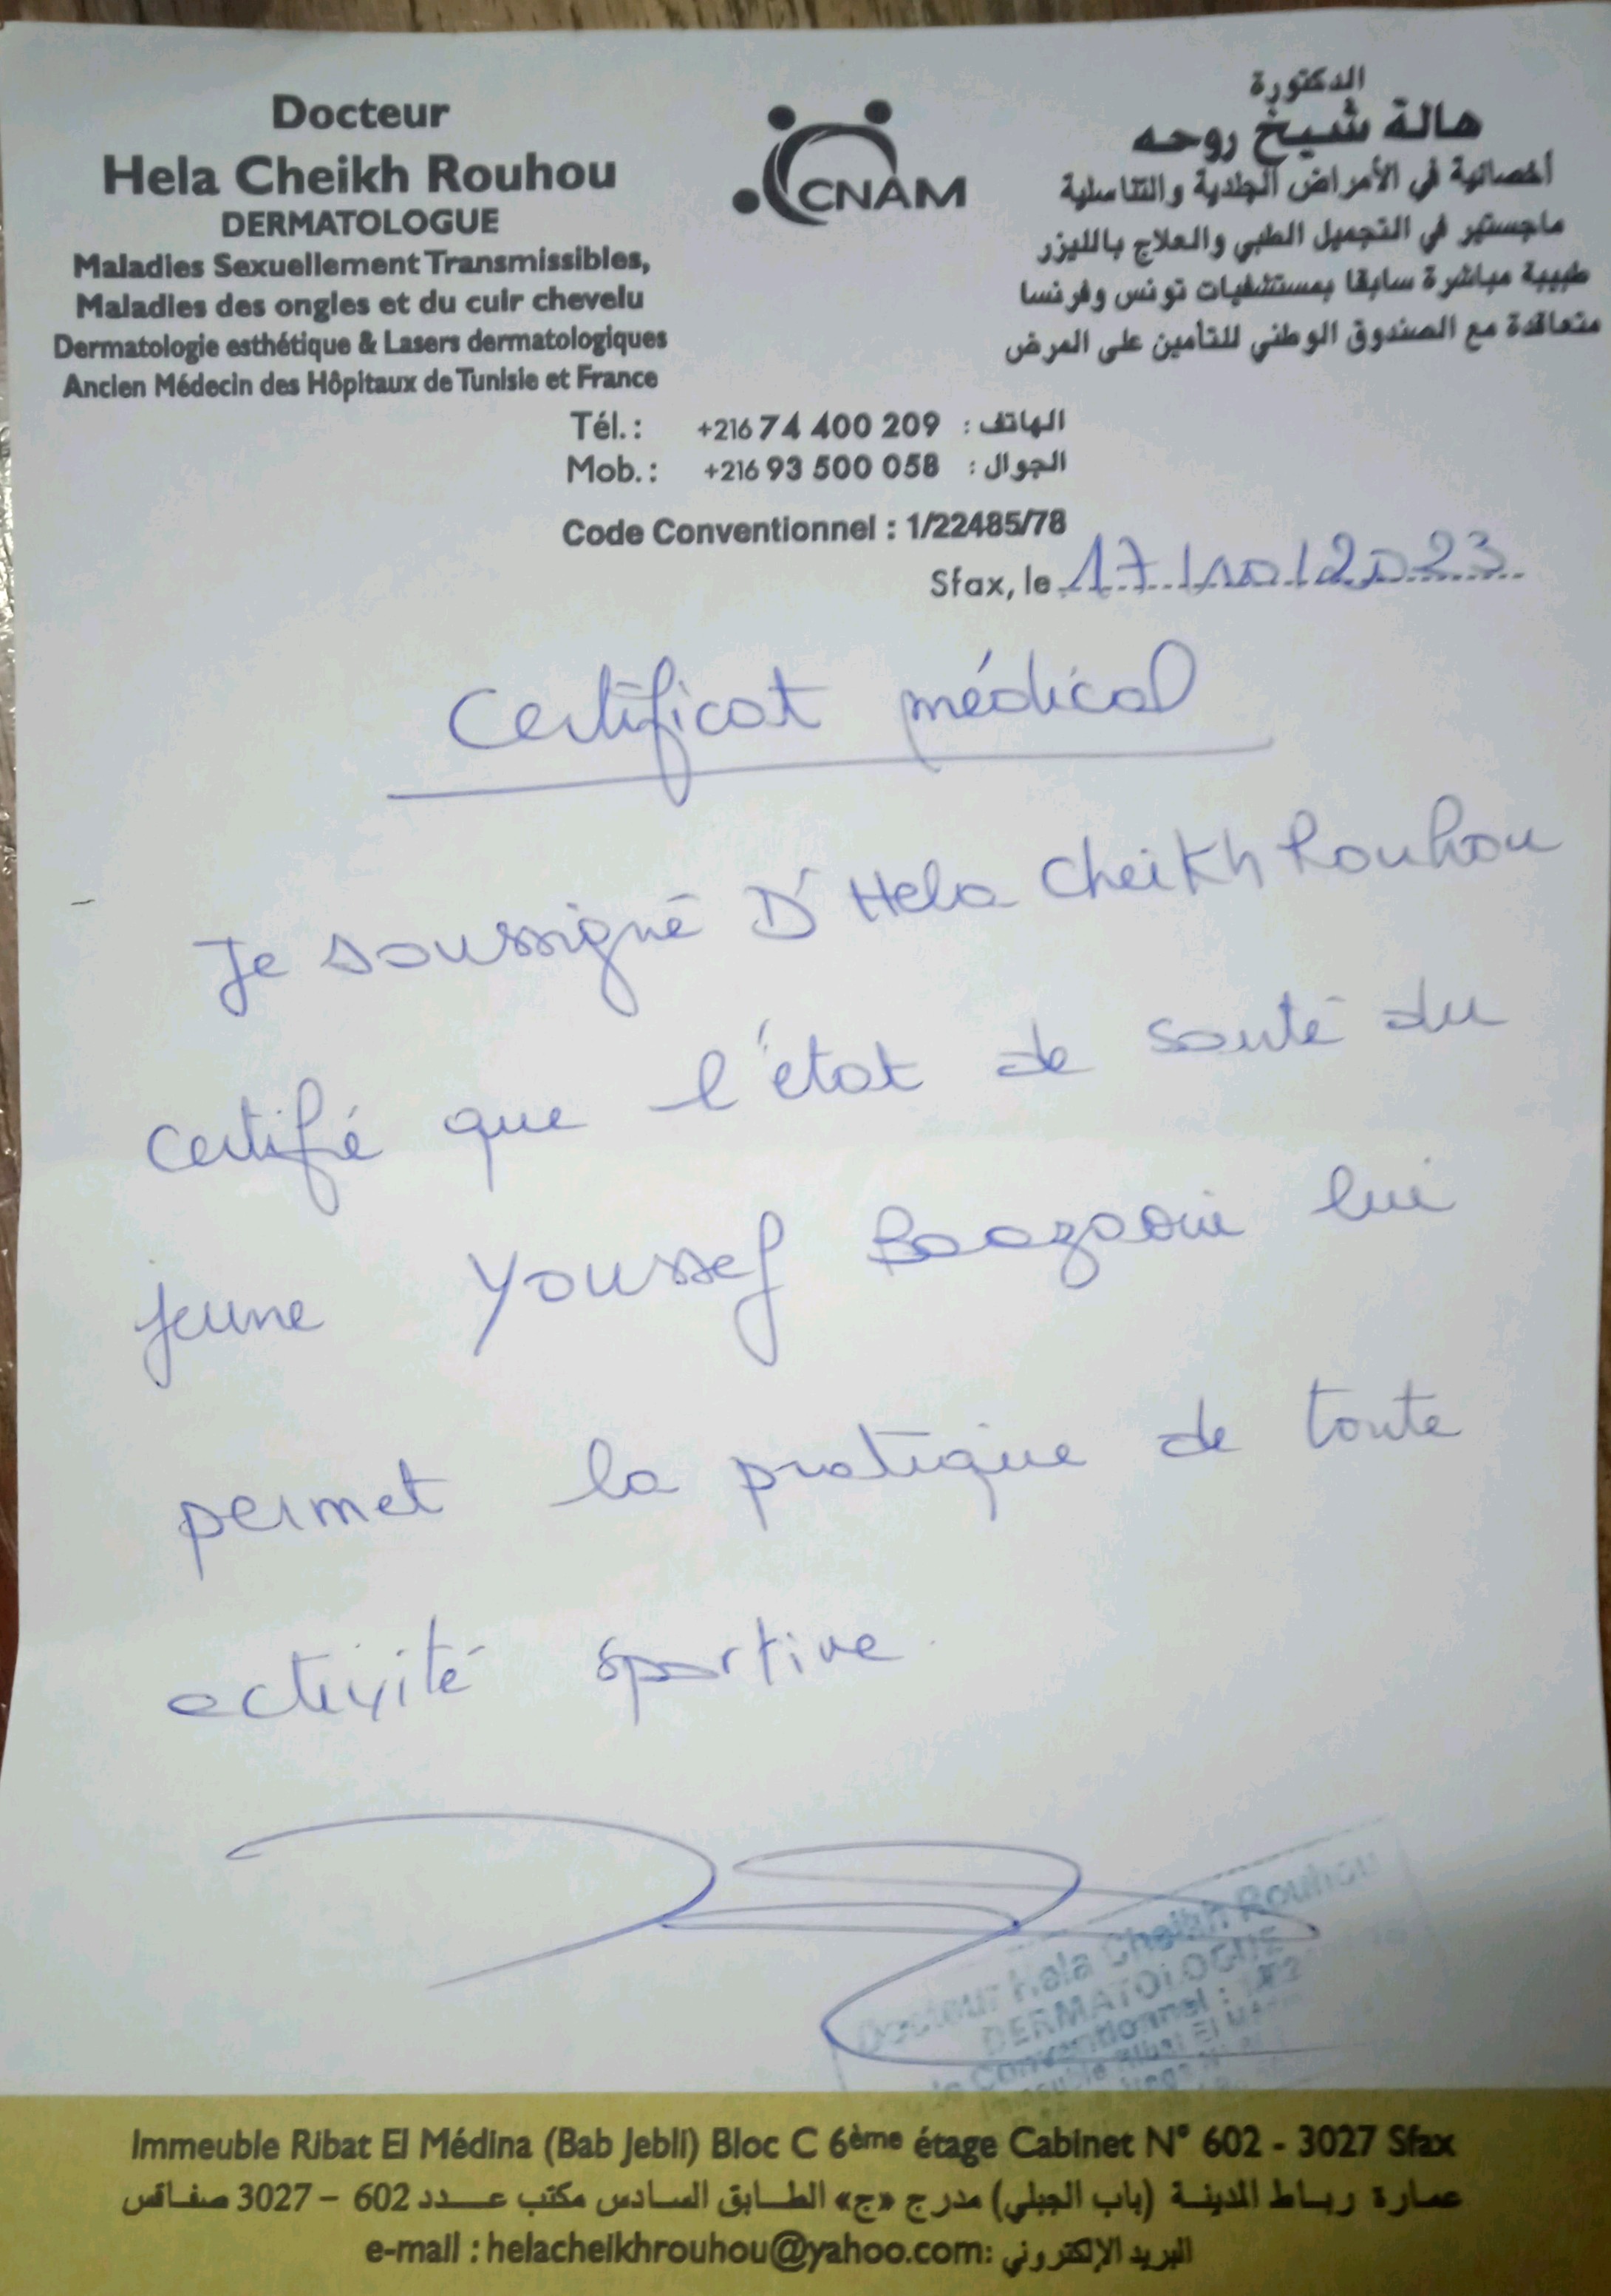 Docteur
Hela Cheikh Rouhou
DERMATOLOGUE
Maladies Sexuellement Transmissibles,
Maladies des ongles et du cuir chevelu
Dermatologie esthétique & Lasers dermatologiques
Ancien Médecin des Hôpitaux de Tunisie et France
CNAM
الدكتورة
هالة شيخ روحه
أخصائية في الأمراض الجلدية والتناسلية
ماجستير في التجميل الطبي والعلاج بالليزر
طبيبة مباشرة سابقا بمستشفيات تونس وفرنسا
متعاقدة مع الصندوق الوطني للتأمين على المرض
Tél. : +216 74 400 209 : الهاتف
Mob. : +216 93 500 058 : الجوال
Code Conventionnel : 1/22485/78
Sfax, le 17/10/2023
Certificat médical
Je soussigné Dr Hela Cheikh Rouhou
certifié que l'état de santé du
jeune Youssef Baazaoui lui
permet la pratique de toute
activité sportive
Docteur Hela Cheikh Rouhou
DERMATOLOGUE
Conventionnel :
Immeuble Ribat El
Immeuble Ribat El Médina (Bab Jebli) Bloc C 6ème étage Cabinet N° 602 - 3027 Sfax
عمارة رباط المدينة (باب الجبلي) مدرج «ج» الطابق السادس مكتب عدد 602 – 3027 صفاقس
e-mail : helacheikhrouhou@yahoo.com: البريد الإلكتروني